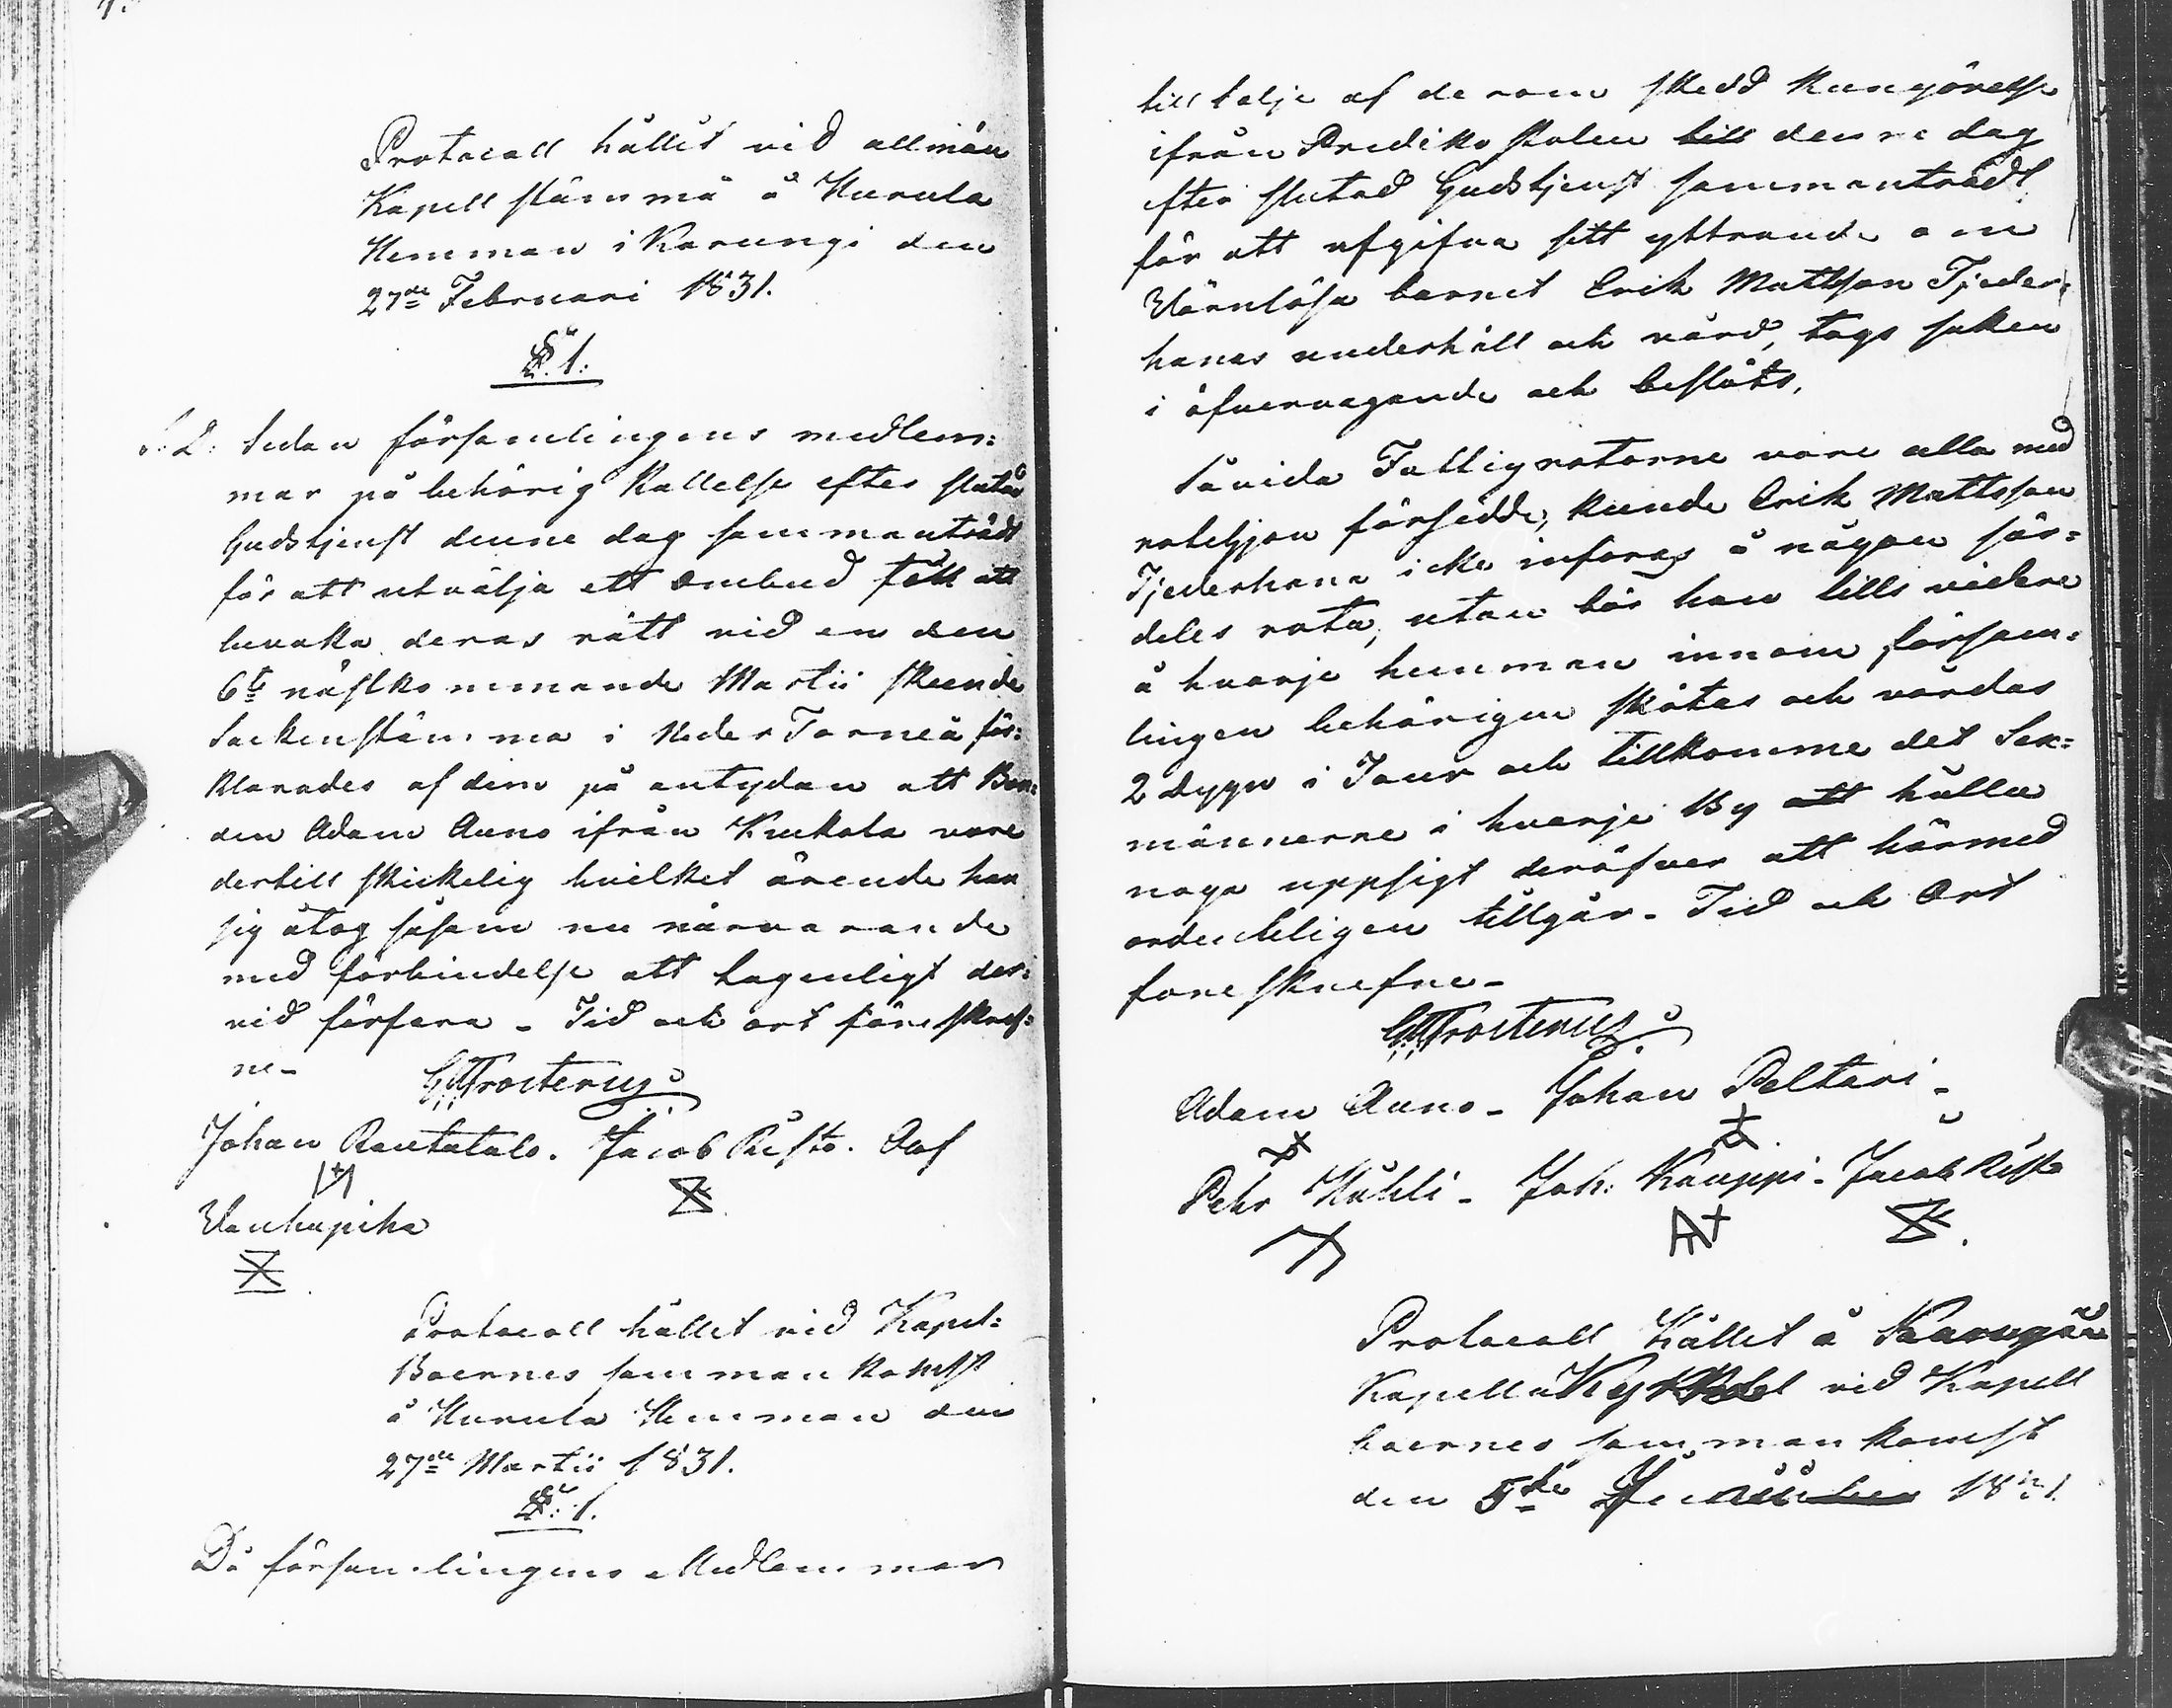 Protocoll hållit vid allmän
Kapell stämma å Kurula
Hemman i Karungi den
27de Februari 1831.
§. 1.
S. D. Sedan församlingens medlem:
mar på behörig Kallelse efter slutad
Gudstjenst denne dag sammanträdt
för att utvälja ett Ombud till att
bevaka deras rätt vid en den
6te nästkommande Martii skeende
Sockenstämma i Neder Torneå för:
klarades af dem på antydan att Bon:
den Adam Auno ifrån Kukkola vore
dertill skickelig hvilket ärende han
sig åtog såsom nu närvarande
med förbindelse att lagenligt der:
vid förfara - Tid och ort föreskref:
ne -
Johan Rautatalo. Jacob Risto. Olof
Vanhapiha
Protocoll hållet vid Kapel:
Boernes sammankomst
å Kurula Hemman den
27de Martii 1831.
§. 1.
Då församlingens Medlemmar
till följe af derom skedd Kungörelse
ifrån Prediko stolen till denne dag
efter slutad Gudstjenst sammanträdt
för att afgifva sitt yttrande om
Värnlösa barnet Erik Mattsson Tjeder:
hanas underhåll och vård, togs saken
i öfvervägande och beslöts,
Såvida Fattigrotarne vore alla med
rotehjon försedde, kunde Erik Mattsson
Tjederhana icke införas å någon sär:
deles rota, utan bör han tills vidare
å hvarje hemman innom försam:
lingen behörigen skötas och vårdas
2 dygn i Tour och tillkomme det Sex:
männerne i hvarje By att hålla
noga uppsigt deröfver att härmed
ordenteligen tillgår - Tid och Ort
föreskrefne -
Adam Auno - Johan Peltari -
Pehr Hähti - Joh: Kauppi - Jacob Risto
Protocoll Hållet å
Kapell vid Kapell
boernes sammankomst
den 5te 1831.